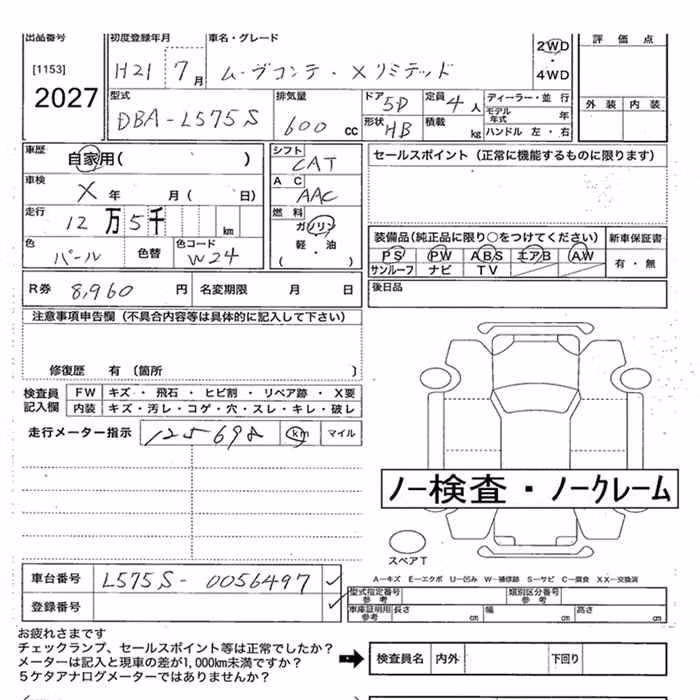 出品番号 初度登録年月 車名・グレード 評価点
[1153] 2027 H21 7月 ムーヴコンテ・Xリミテッド 2WD・4WD
外装 内装
型式 排気量 ドア 5D 定員 4人 ディーラー・並行
DBA-L575S 600cc 形状 HB 積載 kg モデル年式 年
ハンドル 左・右
車歴 自家用( ) シフト CAT セールスポイント(正常に機能するものに限ります)
車検 X年 月( 日) AC AAC
走行 12万5千 km 燃料 ガソリン 軽・油 ( )
装備品(純正品に限り○をつけてください) 新車保証書
色 パール 色替 色コード W24 PS PW ABS エアB AW 有・無
サンルーフ ナビ TV
R券 8,960円 名変期限 月 日 後日品
注意事項申告欄(不具合内容等は具体的に記入して下さい)
修復歴 有〔箇所 〕
検査員記入欄 FW キズ・飛石・ヒビ割・リペア跡・X要
内装 キズ・汚レ・コゲ・穴・スレ・キレ・破レ
走行メーター指示 125698 km マイル
ノー検査・ノークレーム
スペアT
A-キズ E-エクボ U-凹み W-補修跡 S-サビ C-腐食 XX-交換済
車台番号 L575S-0056497
型式指定番号参考 類別区分番号参考
登録番号 車庫証明用参考 長さ cm 幅 cm 高さ cm
お疲れさまです
チェックランプ、セールスポイント等は正常でしたか?
メーターは記入と現車の差が1,000km未満ですか? ➡ 検査員名 内外 下回り
5ケタアナログメーターではありませんか?